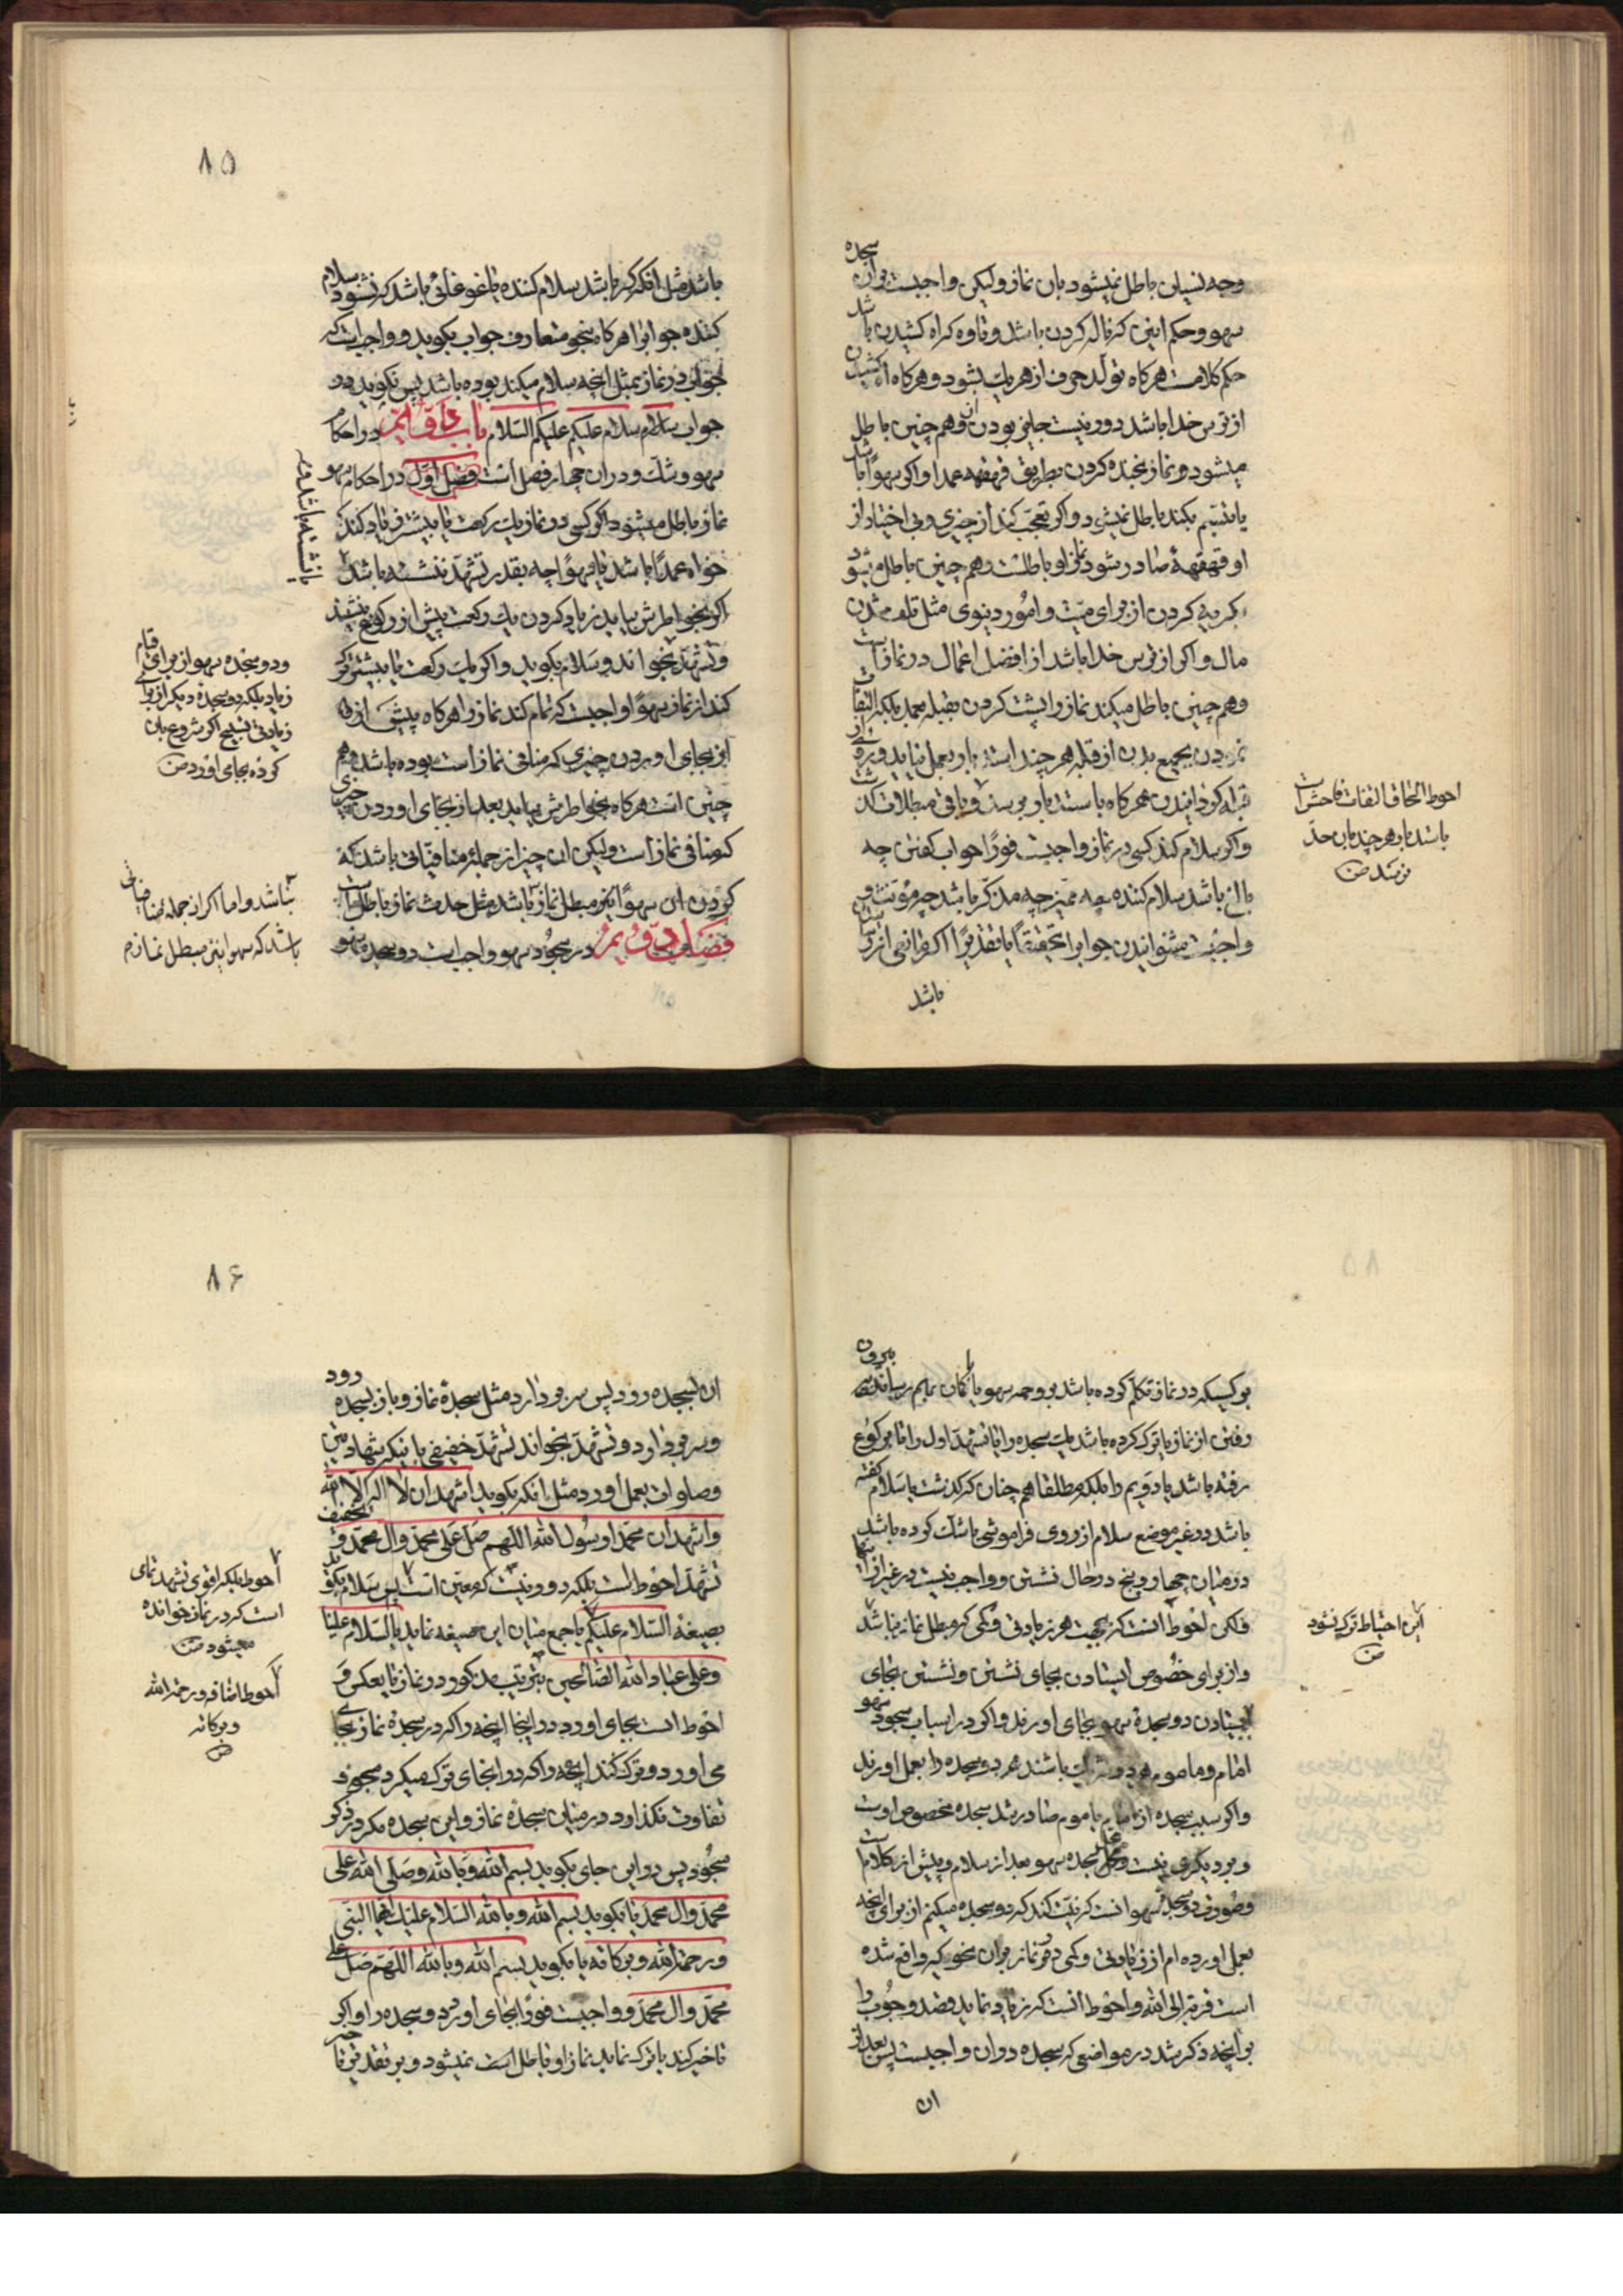 وجه نسیان باطل نمیشود بان نماز ولیکن واجبست برای سجده
سهو و حکم انین که ناله کردن باشد و تاوه که اه کشیدن باشد
حکم کلامست هرکاه تولد حرف از هر یک بشود و هرکاه اه کشیدن
از ترس خدا باشد دور نیست جایز بودن ان و هم چنین باطل
میشود نماز بخنده کردن بطریق قهقهه عمدا و اکر سهوا باشد
یا تبسم بکند باطل نمیشود و اکر تعجب کند از چیزی و بی اختیار از
او قهقهه صادر شود نماز او باطلست و هم چنین باطل میشود
بکریه کردن از برای میت و امور دنیوی مثل تلف شدن
مال و اکر از ترس خدا باشد از افضل اعمال در نماز است
وهم چنین باطل میکند نماز را پشت کردن بقبله بعمد بلکه التفات
نمودن بجمیع بدن از قبله هر چند استدبار بعمل نیاید و رو از
قبله کردانیدن هرکاه باستدبار برسد و باقی مبطلات کذشت
و اکر سلام کند کسی در نماز واجبست فورا جواب کفتن چه
بالغ باشد سلام کننده چه ممیز چه مذکر باشد چه مؤنث و
واجبست شنوانیدن جواب را تحقیقا یا تقدیرا اکر مانعی از
باشد
احوط الحاق التفات فاحش است
باستدبار هر چند بان حد
نرسد ض
۸۵
باشد مثل انکه کر باشد سلام کننده یا غوغائی باشد که نشنود سلام
کننده جواب را هرکاه بنحو متعارف جواب بکوید و واجبست که
جواب در نماز بمثل انچه سلام میکند بوده باشد پس بکوید در
جواب سلام سلام علیکم علیکم السلام باب دویم در احکام
سهو و شک و در ان چهار فصل است فصل اول در احکام سهو
نماز باطل میشود اکر کسی در نماز یک رکعت یا بیشتر زیاد کند
خواه عمدا باشد یا سهوا چه بقدر تشهد ننشسته باشد
اکر بخواطرش بیاید زیاد کردن یک رکعت پیش از رکوع بنشیند
و تشهد بخواند و سلام بکوید و اکر یک رکعت یا بیشتر کم
کند از نماز سهوا واجبست که تمام کند نماز را هرکاه پیش از
ان بجای اوردن چیزی که منافی نماز است بوده باشد وهم
چنین است هرکاه بخواطرش بیاید بعد از بجای اوردن چیزی
که منافی نماز است ولیکن ان چیز از جمله منافیاتی باشد که
کردن ان سهوا نیز مبطل نماز باشد مثل حدث نماز باطل است
فصل دویم در سجود سهو واجب است دو سجده سهو
یا نشسته باشد
و دو سجده سهو از برای قیام
زیاد بلکه دو سجده دیکر از برای
زیادتی تسبیح اکر شروع بان
کرده بجای اورد ض
نباشد و اما اکر از جمله منافیاتی
باشد که سهوا نیز مبطل نماز
بر کسیکه در نماز تکلم کرده باشد بر وجه سهو یا کمان بهم رسانیدن بیرون
رفتن از نماز یا ترک کرده باشد یک سجده را یا تشهد اول را تا برکوع
رفته باشد یا دویم را بلکه مطلقا هم چنان که کذشت یا سلام کفته
باشد در غیر موضع سلام از روی فراموشی یا شک کرده باشد
در میان چهار و پنج در حال نشستن و واجب نیست در غیر از اینها
ولکن احوط انست که بجهت هر زیادتی و کمی که مبطل نماز نباشد
و از برای خصوص ایستادن بجای نشستن و نشستن بجای
ایستادن دو سجده سهو بجای اورند و اکر در اسباب سجود سهو
امام و ماموم هر دو شریک باشند هر دو سجده را بعمل اورند
و اکر سبب سجده از امام یا ماموم صادر شد سجده مخصوص اوست
و بر دیکری نیست و محل سجده سهو بعد از سلام و پیش از کلام است
و صورت دو سجده سهو انست که نیت کند که دو سجده میکنم از برای انچه
بعمل اورده ام از زیادتی و کمی در نماز بران نحو که واقع شده
است قربة الی الله و احوط انست که زیاد نماید قصد وجوب را
بر انچه ذکر شد در مواضعی که سجده در ان واجبست پس بعد از
ان
این احتیاط ترک نشود
ض
۸۶
ان بسجده رود پس سر بردارد مثل سجده نماز و باز بسجده رود
و سر بردارد و تشهد بخواند تشهد خفیفی باینکه شهادتین
و صلوات بعمل اورد مثل انکه بکوید اشهد ان لا اله الا الله
و اشهد ان محمدا رسول الله اللهم صل علی محمد و ال محمد و تخفیف
تشهد احوط است بلکه دور نیست که معین است پس سلام بکوید
بصیغه السلام علیکم یا جمع میان این صیغه نماید با السلام علینا
و علی عباد الله الصالحین بترتیب مذکور در نماز یا بعکس و
احوط است بجای اورد در اینجا انچه را که در سجده نماز بجای
می اورد و ترک کند انچه را که در انجای ترک میکرد مجوزه
تفاوت نکذارد در میان سجده نماز و این سجده مکر در ذکر
سجود پس در این جای بکوید بسم الله و بالله و صلی الله علی
محمد و ال محمد یا بکوید بسم الله و بالله السلام علیک ایها النبی
و رحمة الله و برکاته یا بکوید بسم الله و بالله اللهم صل علی
محمد و ال محمد و واجبست فورا بجای اورد دو سجده را و اکر
تاخیر کند یا ترک نماید نماز او باطل نمیشود و بر تقدیر تاخیر
احوط بلکه اقوی تشهد نمای
است که در نماز خوانده
میشود ض
احوط اضافه و رحمة الله
و برکاته
ض